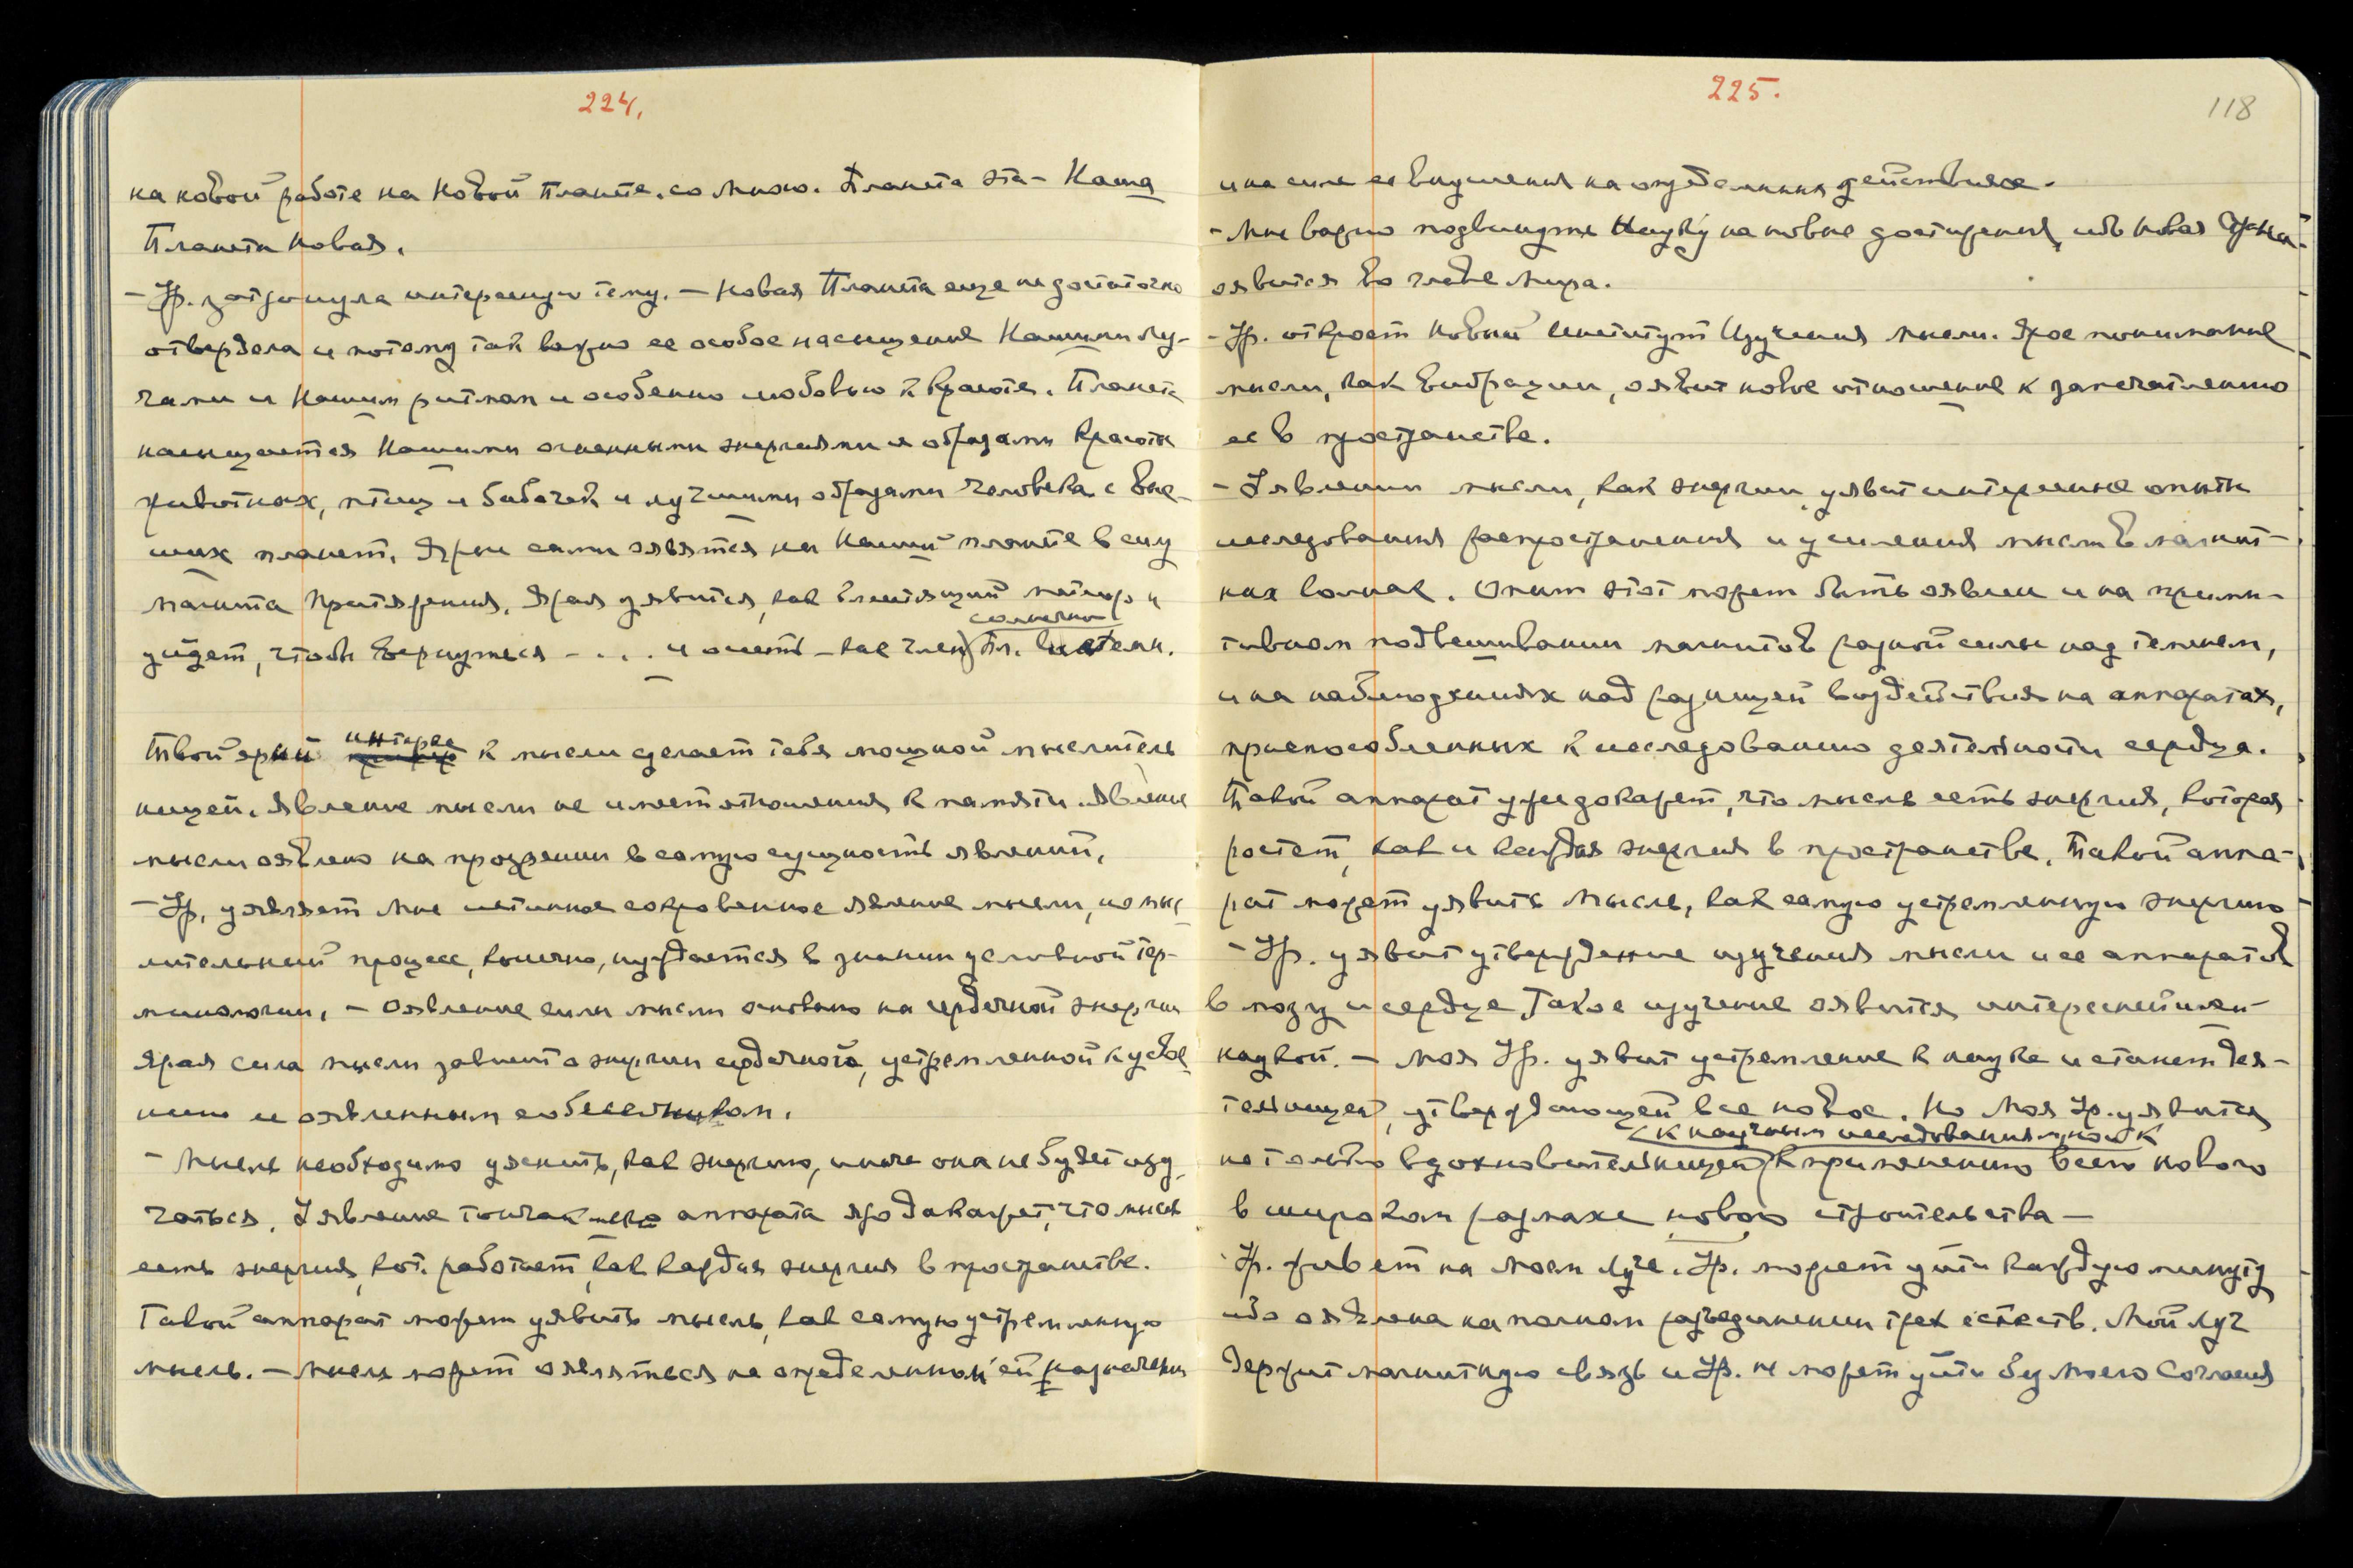 224.
на новой работе на Новой планете со Мною. Планета эта - Наша
Планета новая.
- Ур. затронула интересную тему. - Новая Планета еще недостаточно
отвердела и потому так важно ее особое насыщение Нашими Лу-
чами и Нашим ритмом и особенно любовью к Красоте. Планета
насыщается Нашими огненными энергиями и образами Красоты
животных, птиц и бабочек и лучшими образами человека с выс-
ших планет. Ярые сами оявятся на Нашей планете в силу
магнита Притяжения. Ярая уявится, как блестящий метеор и
солнечн
уйдет, чтобы вернуться - . . . и опять - как член Пл. системы.
интерес
Твой ярый к мысли сделает тебя мощной мыслитель
ницей. Явление мысли не имеет отношения к памяти. Явление
мысли оявлено на прозрении в самую сущность явлений.
- Ур. уявляет Мне истинное сокровенное явление мысли, но мыс
лительный процесс, конечно, нуждается в знании условной тер-
минологии. - Оявление силы мысли основано на сердечной энергии
Ярая сила мысли зависит о энергии сердечного, устремленной к
нию и оявленным собеседником.
- Мысль необходимо уяснить, как энергию, иначе она не будет изу
чаться. Уявление тончайшего аппарата яро докажет, что мысль
есть энергия, кот. работает, как каждая энергия в пространстве.
Такой аппарат может уявить мысль, как самую устремленную
мысль. - Мысль может оявляться на определенном ей назначении
225.
118
и на силе ее внушения на определенныя действия.
- Мне важно подвинуть Науку на новые достижения, ибо Новая
оявится во главе Мира.
- Ур. откроет Новый Институт Изучения мысли. Ярое понимание
мысли, как вибрации, оявит новое отношение к запечатлению
ее в пространстве.
- Уявлении мысли, как энергии, уявит интересные опыты
исследования распространения и усиления мысли в магнит-
ных волнах. Опыт этот может быть оявлен и на прими-
тивном подвешивании магнитов разной силы над теменем,
и на наблюдениях над разницей воздействия на аппаратах,
приспособленных к исследованию деятельности сердца.
Такой аппарат уже докажет, что мысль есть энергия, которая
растет, как и каждая энергия в пространстве. Такой аппа-
рат может уявить мысль, как самую устремленную энергию
- Ур. уявит утверждение изучения мысли и ее аппаратов
в мозгу и сердце. Такое изучение оявится интереснейшей
наукой. - Моя Ур. уявит устремление к науке и станет дея-
тельницей, утверждающей все новое. Но Моя Ур. уявится
к научным исследованиям, но и к
не только вдохновительницей к применению всего нового
в широком размахе нового строительства -
Ур. живет на Моем Луче. Ур. может уйти каждую минуту
ибо оявлена на полном разъединении трех естеств. Мой Луч
держит магнитную связь и Ур. не может уйти без Моего Согласия